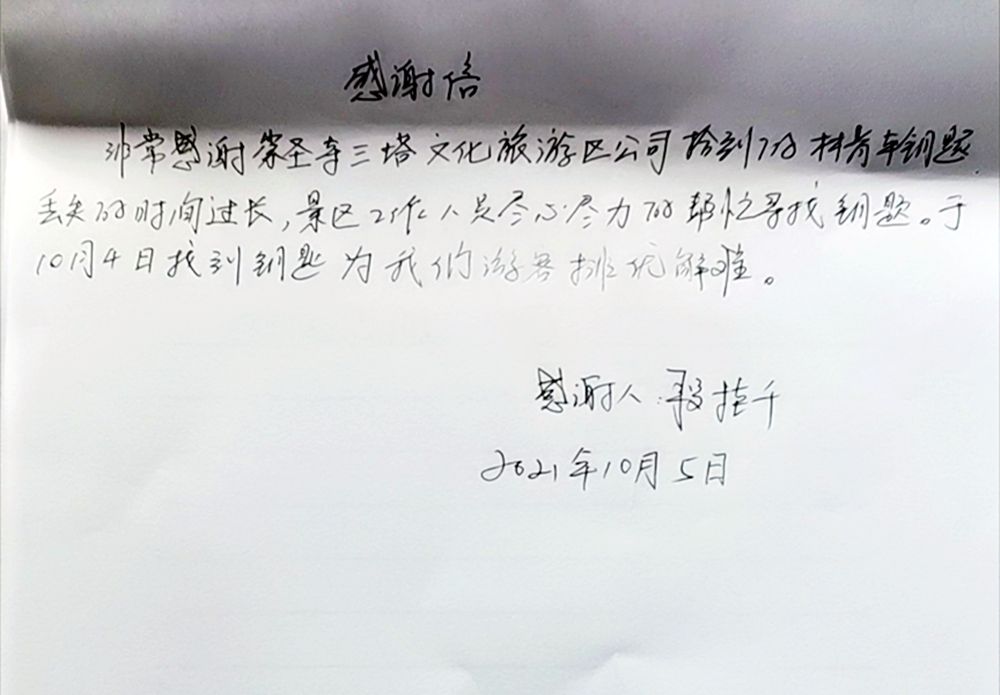 感谢信
非常感谢崇圣寺三塔文化旅游区公司拾到了的 车钥匙
丢失的时间过长,景区工作人员尽心尽力的帮忙寻找钥匙。于
10月4日找到钥匙为我们游客排忧解难。
感谢人:段 千
2021年10月5日